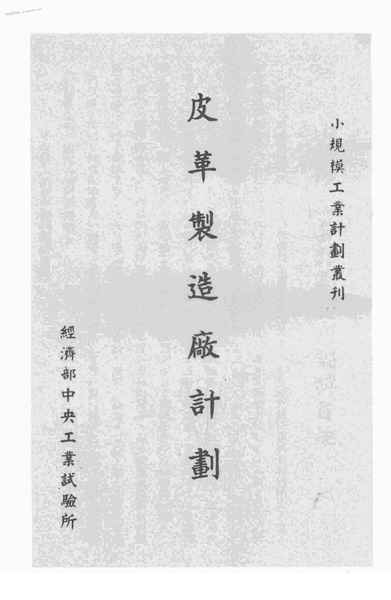 小規模工業計劃叢刊
皮革製造廠計劃
經濟部中央工業試驗所